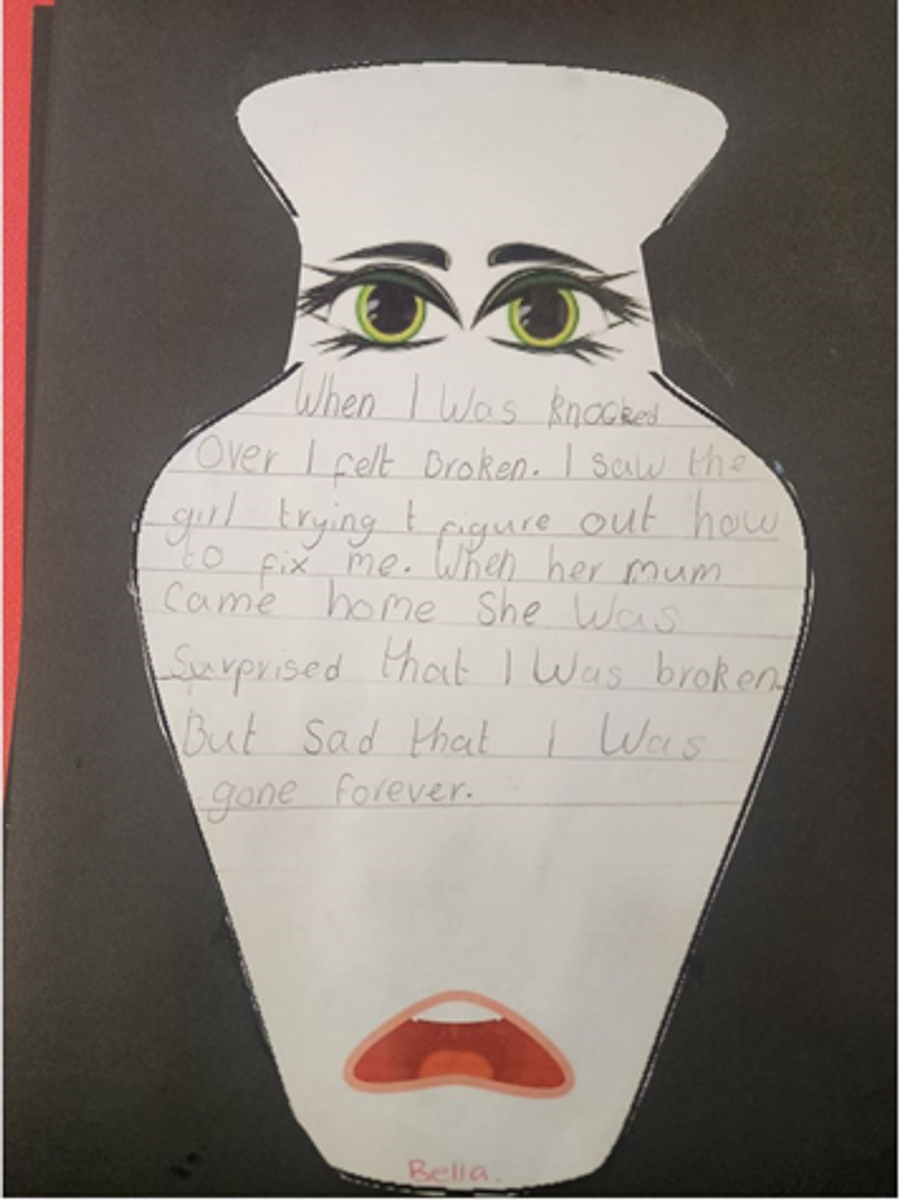 When I Was knocked
Over I felt broken. I saw the
girl trying t figure out how
to fix me. When her mum
Came home She Was
Surprised that I Was broken.
But Sad that I Was
gone forever.
Bella.